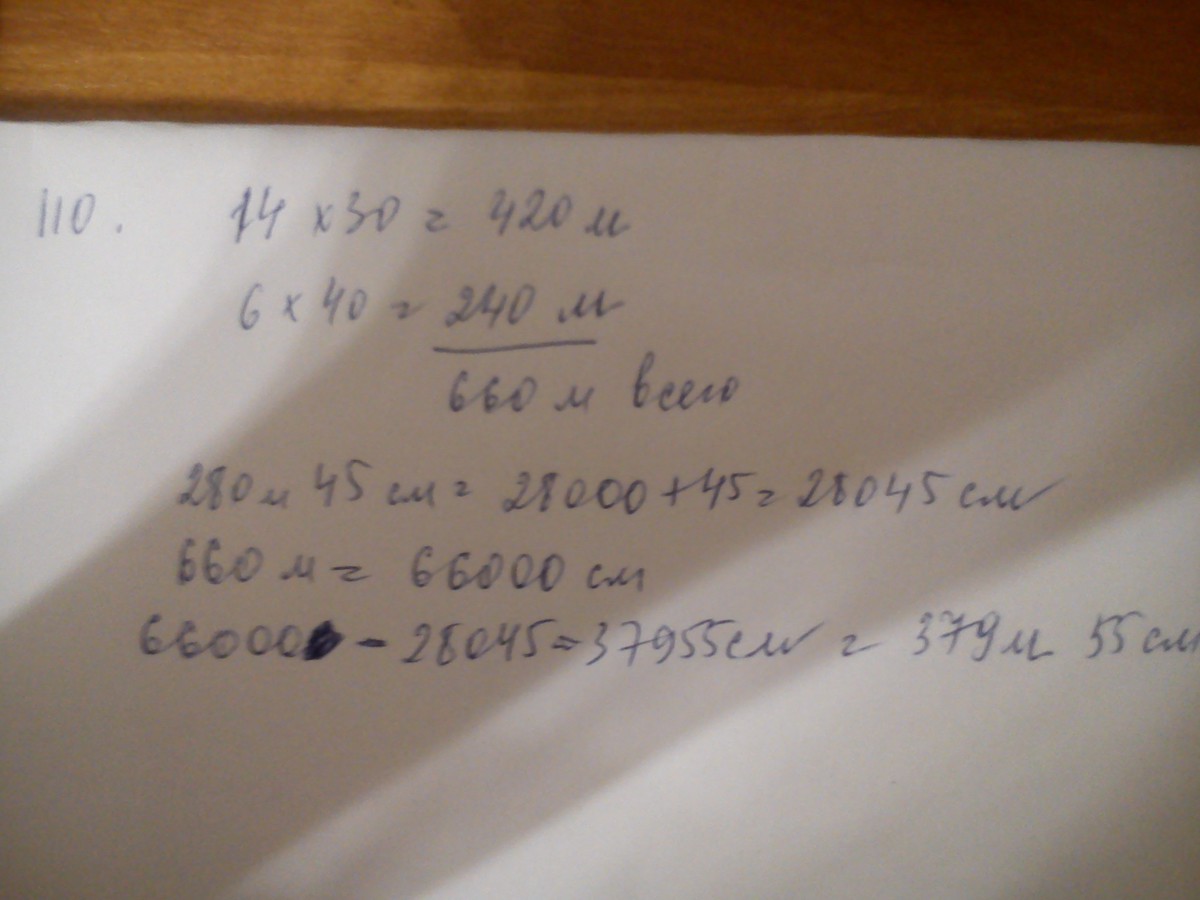 110. 14 x 30 = 420 м
6 x 40 = 240 м
660 м всего
280 м 45 см = 28000 + 45 = 28045 см
660 м = 66000 см
66000 - 28045 = 37955 см = 379 м 55 см